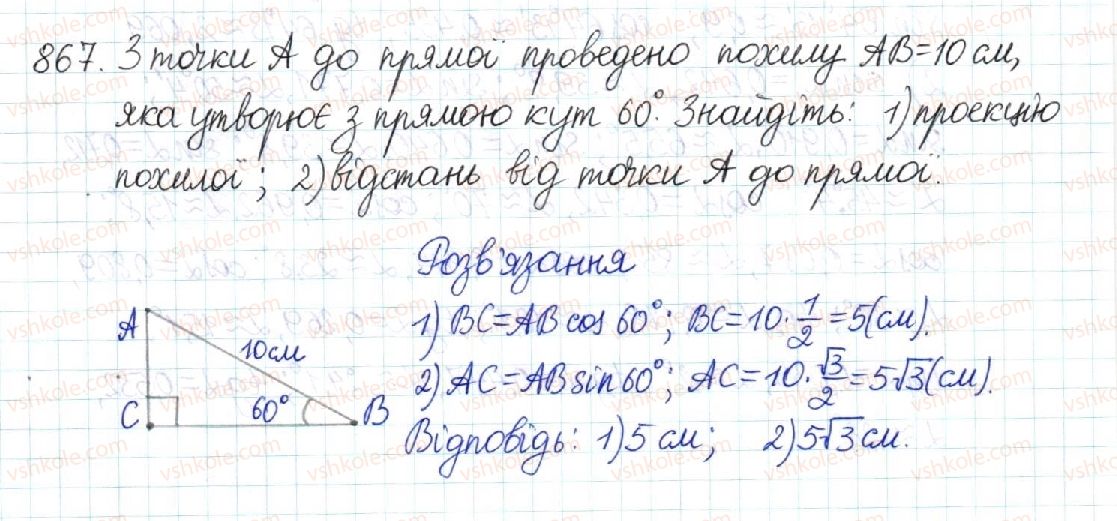 867. З точки А до прямої проведено похилу АВ=10 см,
яка утворює з прямою кут 60°. Знайдіть: 1) проекцію
похилої; 2) відстань від точки А до прямої.
Розв'язання
1) BC=AB cos 60°; BC=10·1/2=5(см).
2) AC=AB sin 60°; AC=10·√3/2=5√3(см).
Відповідь: 1) 5 см; 2) 5√3 см.
A
10 см
C
60°
B
vshkole.com